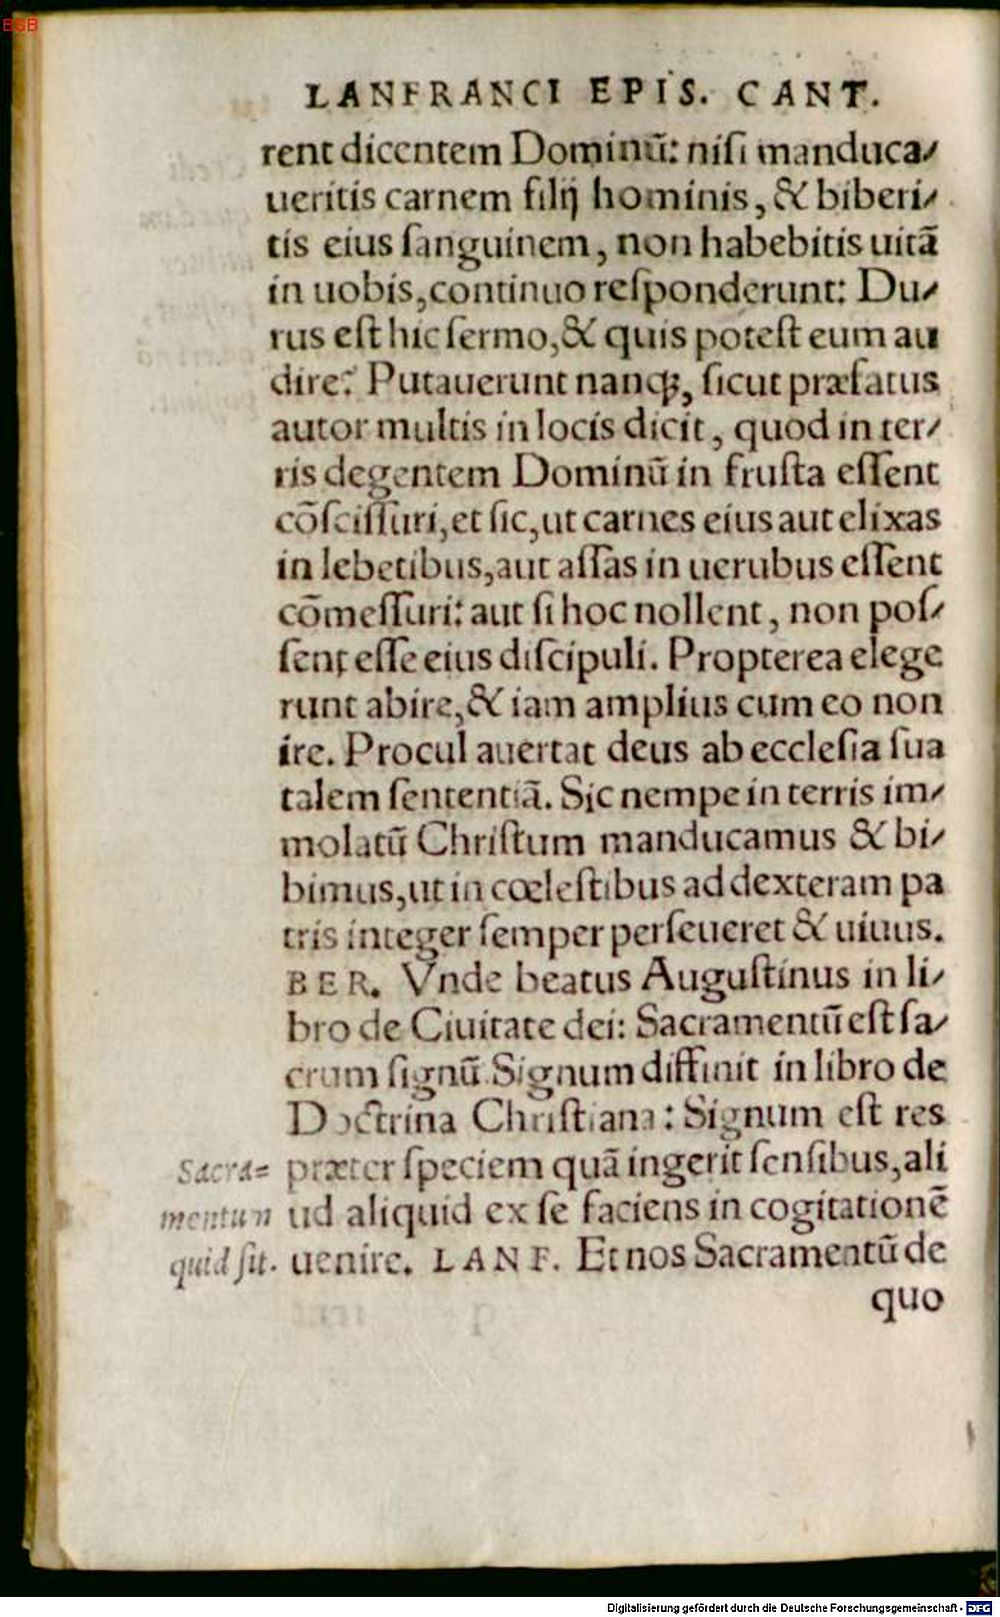 BSB
LANFRANCI EPIS. CANT.
rent dicentem Dominū: niſi manduca/
ueritis carnem filij hominis, & biberi/
tis eius ſanguinem, non habebitis uitā
in uobis, continuo reſponderunt: Du/
rus eſt hic ſermo, & quis poteſt eum au
dire? Putauerunt nanqꝫ, ſicut præfatus
autor multis in locis dicit, quod in ter/
ris degentem Dominū in fruſta eſſent
cōſciſſuri, et ſic, ut carnes eius aut elixas
in lebetibus, aut aſſas in uerubus eſſent
cōmeſſuri: aut ſi hoc nollent, non poſ/
ſent eſſe eius diſcipuli. Propterea elege
runt abire, & iam amplius cum eo non
ire. Procul auertat deus ab eccleſia ſua
talem ſententiā. Sic nempe in terris im/
molatū Chriſtum manducamus & bi/
bimus, ut in cœleſtibus ad dexteram pa
tris integer ſemper perſeueret & uiuus.
BER. Vnde beatus Auguſtinus in li/
bro de Ciuitate dei: Sacramentū eſt ſa/
crum ſignū. Signum diffinit in libro de
Doctrina Chriſtiana: Signum eſt res
præter ſpeciem quā ingerit ſenſibus, ali
ud aliquid ex ſe faciens in cogitationē
uenire. LANF. Et nos Sacramentū de
quo
Sacra=
mentum
quid ſit.
Digitalisierung gefördert durch die Deutsche Forschungsgemeinschaft - DFG